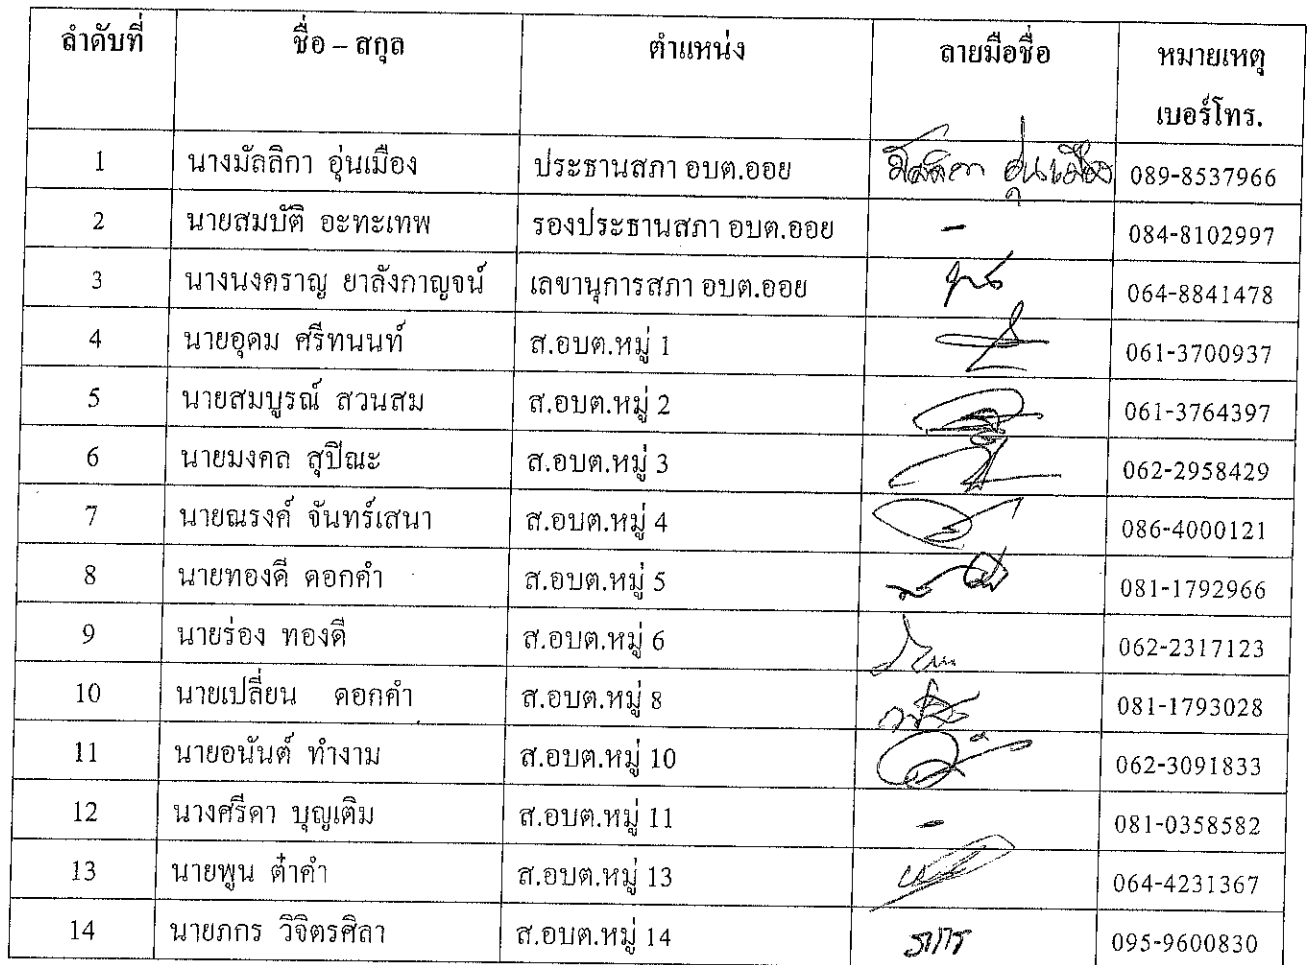 ลำดับที่ ชื่อ – สกุล ตำแหน่ง ลายมือชื่อ หมายเหตุ
เบอร์โทร.
1 นางมัลลิกา อุ่นเมือง ประธานสภา อบต.ออย มัลลิกา อุ่นเมือง 089-8537966
2 นายสมบัติ อะทะเทพ รองประธานสภา อบต.ออย - 084-8102997
3 นางนงคราญ ยาลังกาญจน์ เลขานุการสภา อบต.ออย 064-8841478
4 นายอุดม ศรีทนนท์ ส.อบต.หมู่ 1 061-3700937
5 นายสมบูรณ์ สวนสม ส.อบต.หมู่ 2 061-3764397
6 นายมงคล สุปิณะ ส.อบต.หมู่ 3 062-2958429
7 นายณรงค์ จันทร์เสนา ส.อบต.หมู่ 4 086-4000121
8 นายทองดี ดอกคำ ส.อบต.หมู่ 5 081-1792966
9 นายร่อง ทองดี ส.อบต.หมู่ 6 062-2317123
10 นายเปลี่ยน ดอกคำ ส.อบต.หมู่ 8 081-1793028
11 นายอนันต์ ทำงาม ส.อบต.หมู่ 10 062-3091833
12 นางศรีดา บุญเติม ส.อบต.หมู่ 11 - 081-0358582
13 นายพูน ต๋าคำ ส.อบต.หมู่ 13 064-4231367
14 นายภกร วิจิตรศิลา ส.อบต.หมู่ 14 ภกร 095-9600830